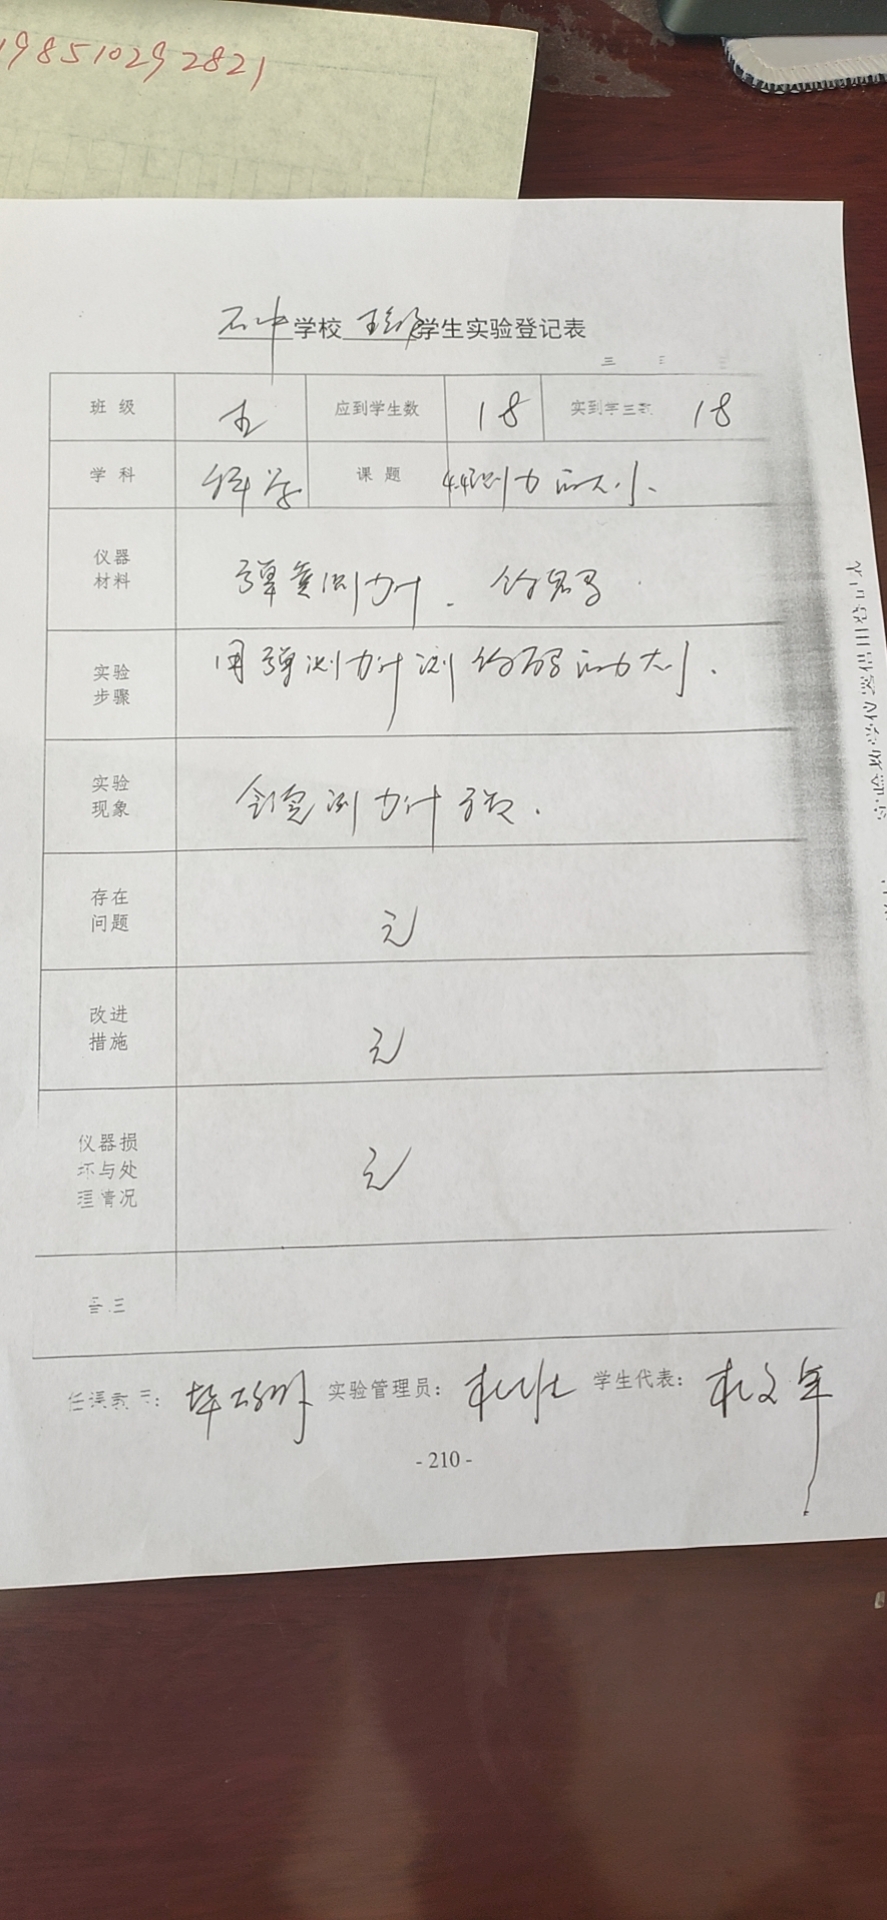 198510292821
石中学校 学生实验登记表
班级 五 应到学生数 18 实到学生数 18
学科 科学 课题 4.4测力的大小.
仪器
材料
弹簧测力计. 钩码
实验
步骤
用弹测力计测钩码的力大小.
实验
现象
会 测力计
存在
问题
无
改进
措施
无
仪器损
坏与处
理情况
无
任课教师: 实验管理员: 学生代表: 杜文军
- 210 -